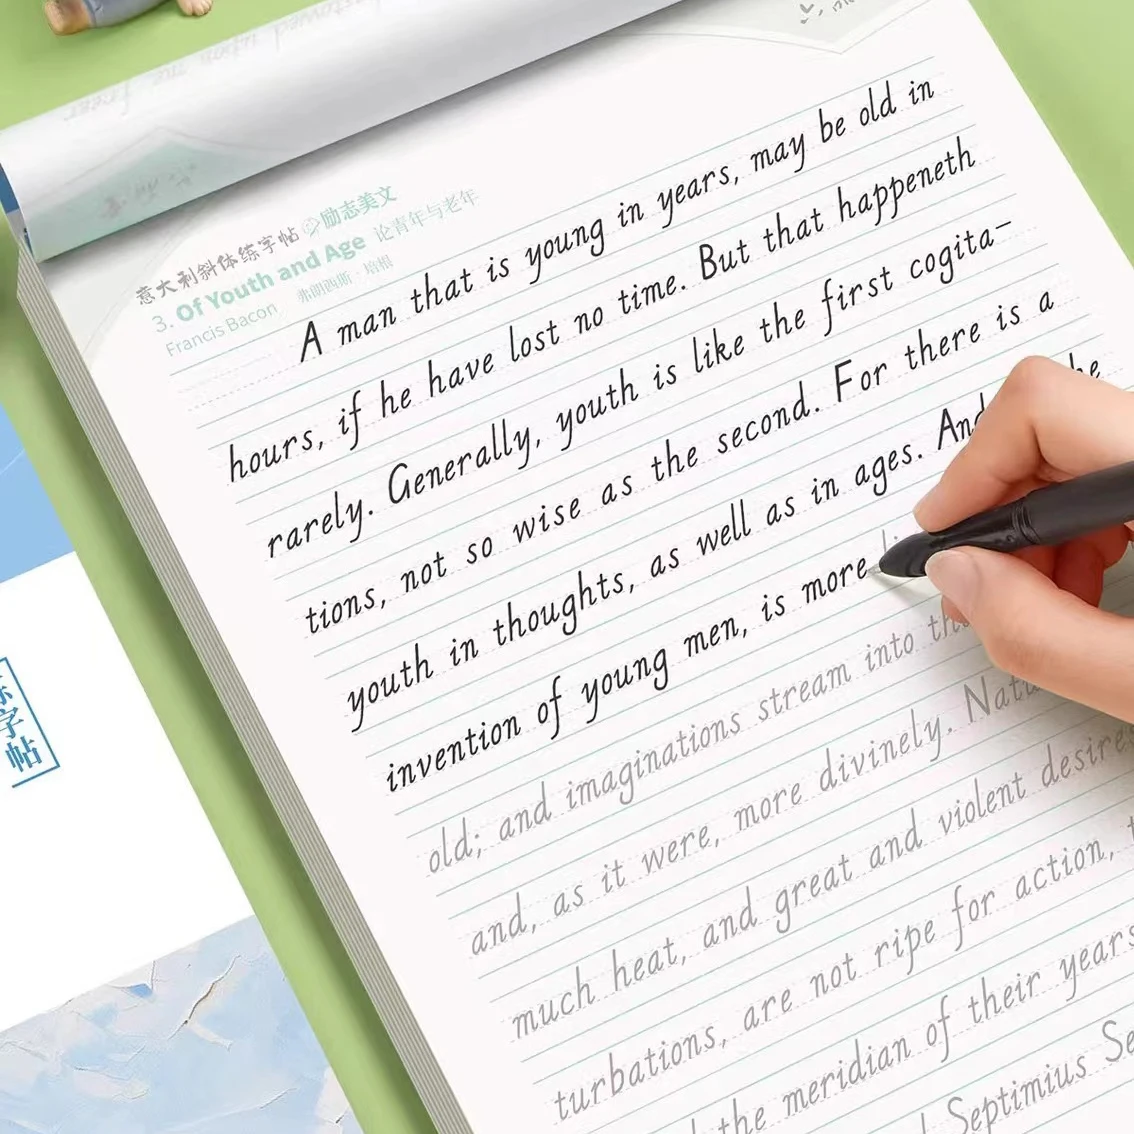 意大利斜体练字帖 励志美文
3. Of Youth and Age 论青年与老年
Francis Bacon 弗朗西斯·培根
A man that is young in years, may be old in
hours, if he have lost no time. But that happeneth
rarely. Generally, youth is like the first cogita-
tions, not so wise as the second. For there is a
youth in thoughts, as well as in ages. And
invention of young men, is more
old; and imaginations stream into
and, as it were, more divinely.
much heat, and great and violent desires
turbations, are not ripe for action,
the meridian of their years
Septimius
练字帖